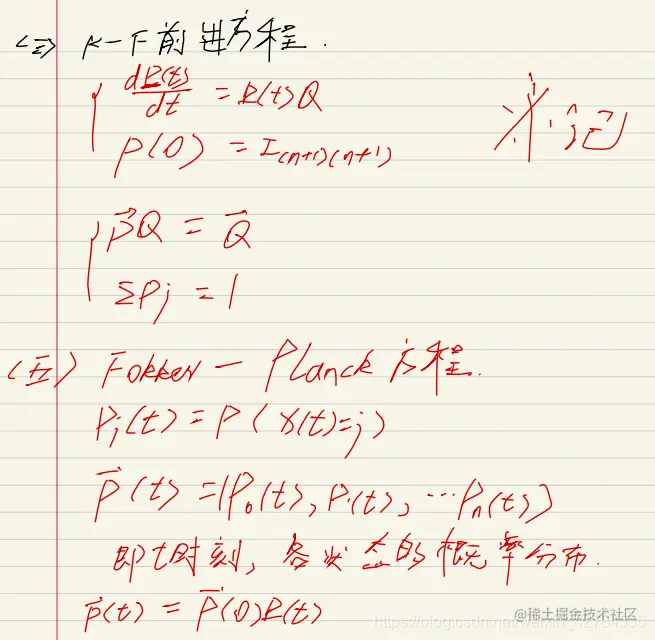 <三> K-F前进方程.
dP(t)/dt = P(t)Q
P(0) = I(n+1)(n+1)
必记
p⃗Q = 0⃗
Σpj = 1
(五) Fokker - Planck方程.
Pj(t) = P(X(t)=j)
p⃗(t) = (P0(t), P1(t), …Pn(t))
即t时刻, 各状态的概率分布.
p⃗(t) = p⃗(0)P(t)
@稀土掘金技术社区